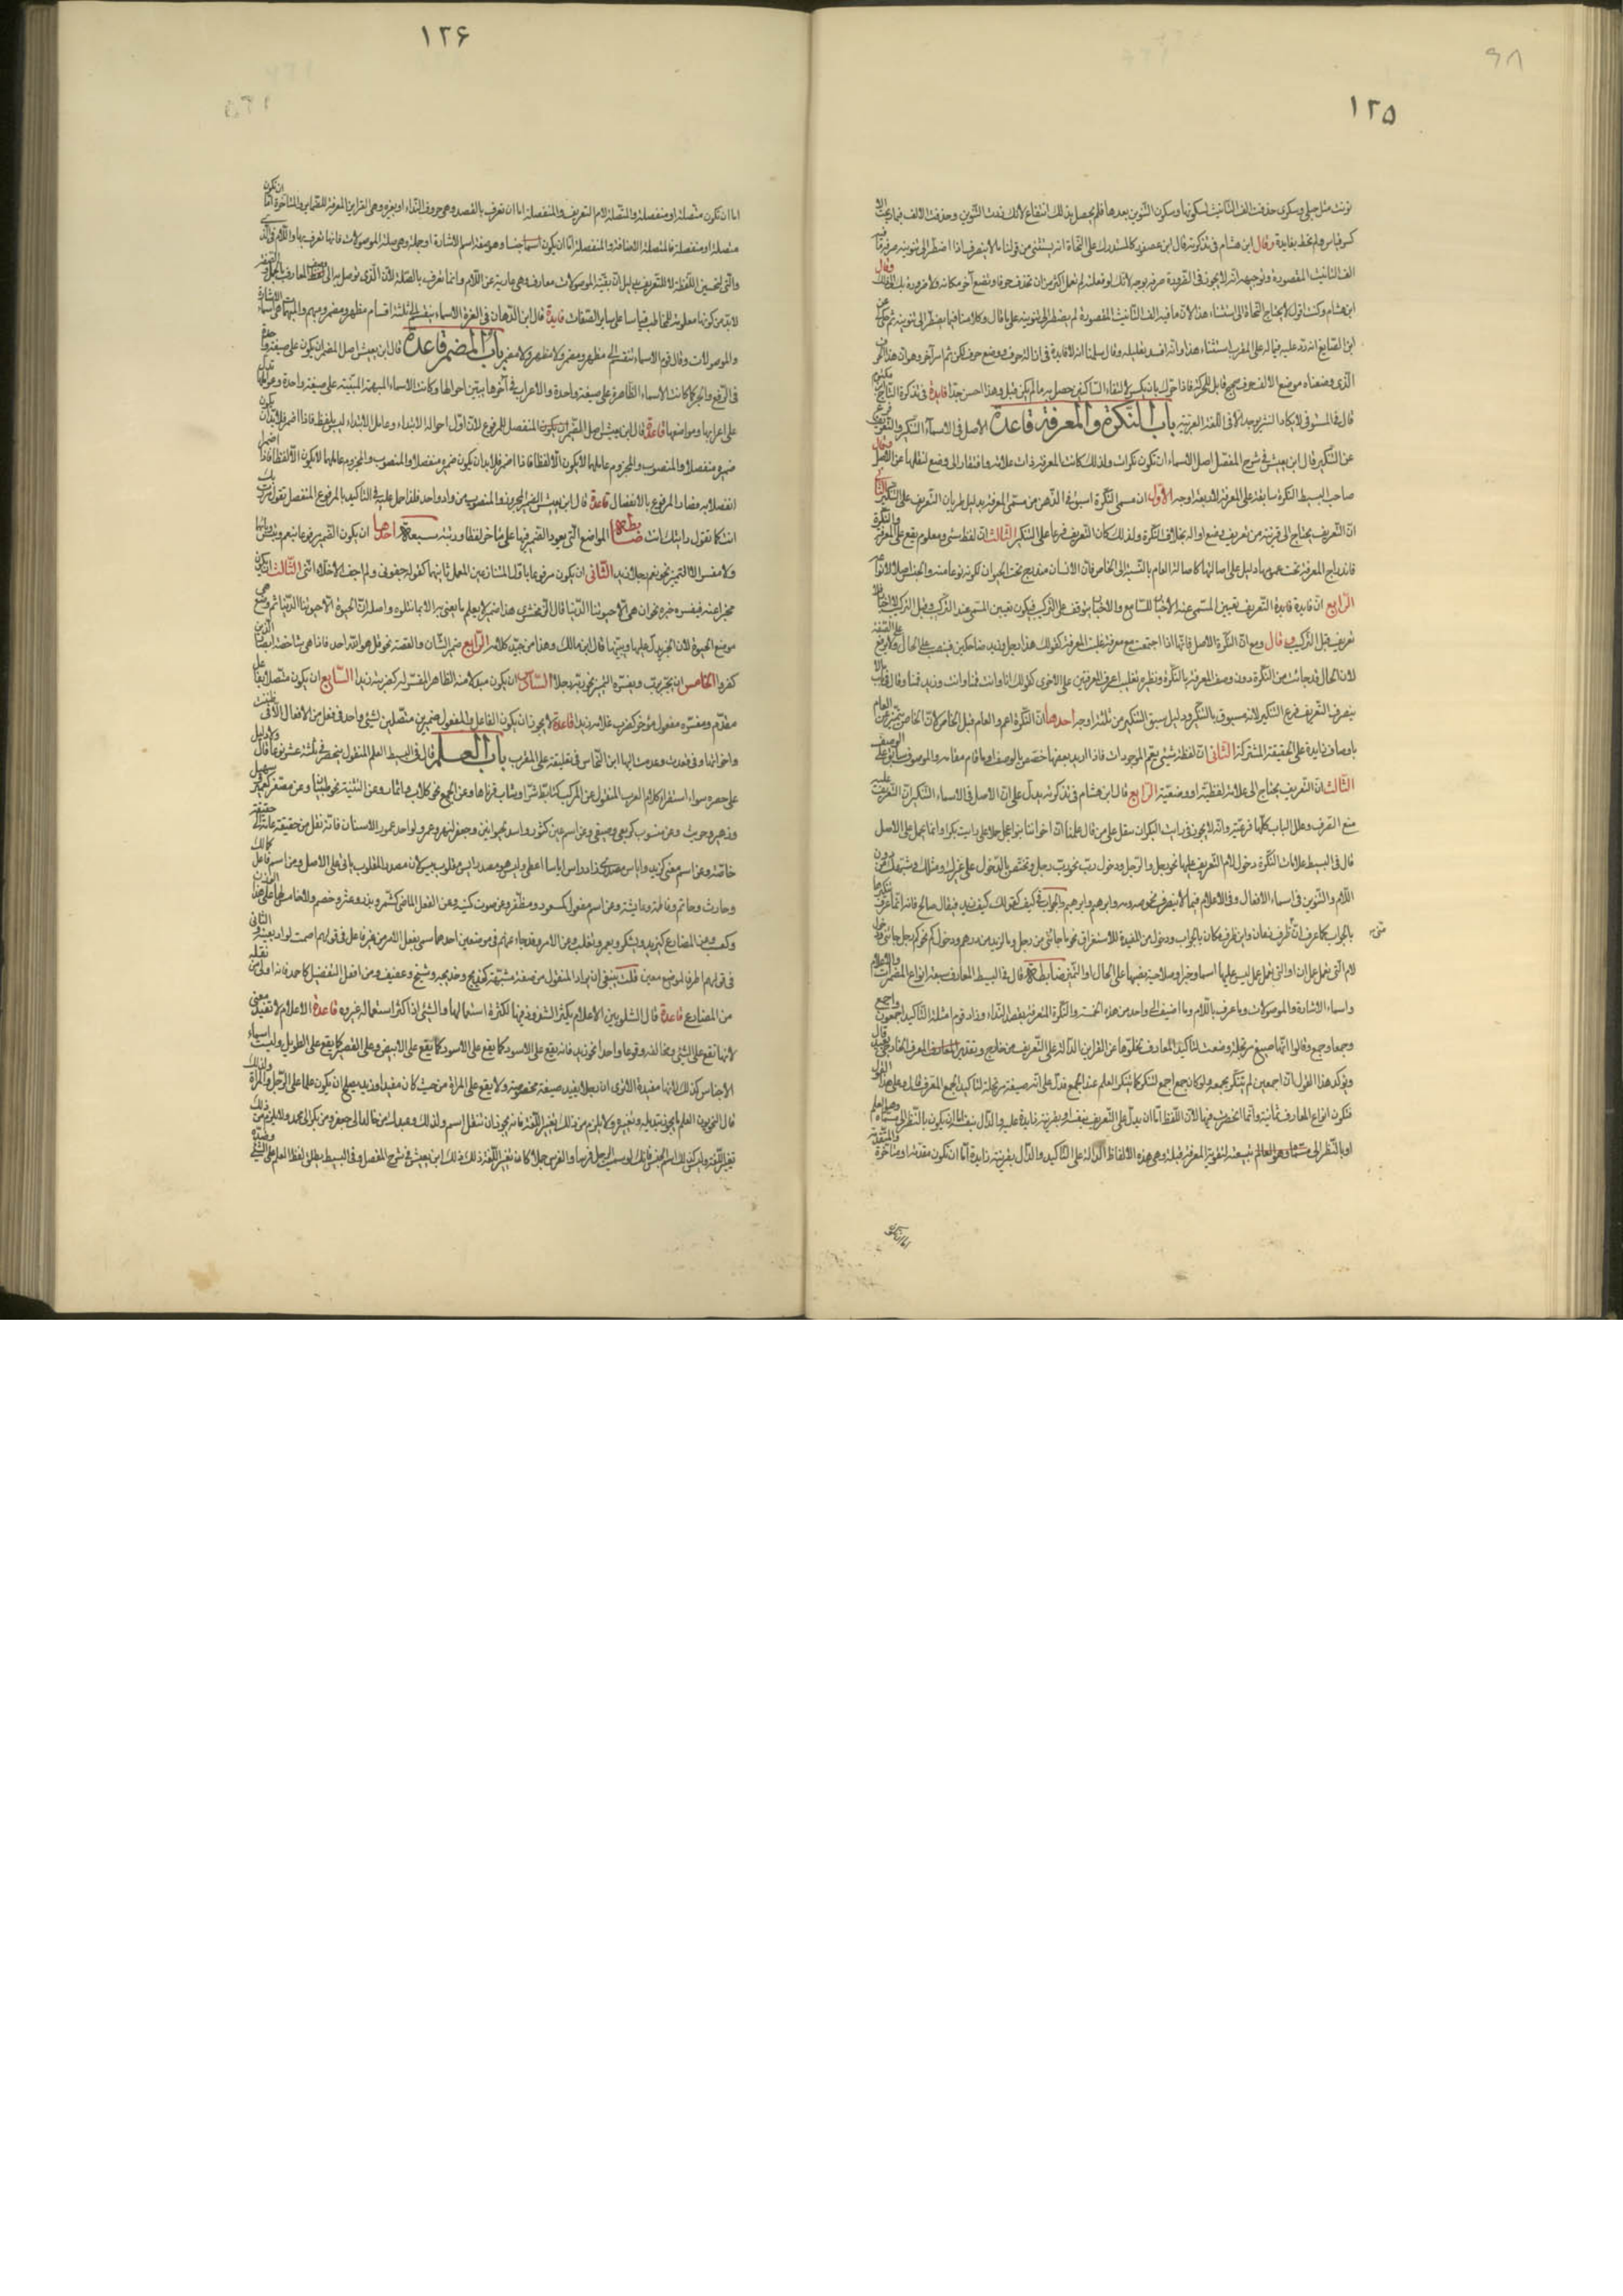 ١٢٥
نونت مثل حبلى وسكرى حذفت الف التانيث لسكونها وسكون التنوين بعدها فلم يحصل بذلك انتفاع لانك زدت التنوين وحذفت الالف فما ربحت الا
كسر قياس ولم تحظ بفايدة وقال ابن هشام فى تذكرته قال ابن عصفور كالمستدرك على النحاة انه يستثنى من قولنا ما لا ينصرف اذا اضطر الى تنوينه صرف ما فيه
الف التانيث المقصورة وتوجيهه انه لا يجوز فى الضرورة صرفه بوجه لانك لو فعلته لم تعمل اكثر من ان تحذف حرفا وتضع آخر مكانه ولا ضرورة بك الى ذلك وقال
ابن هشام وكنت اقول لا يحتاج النحاة الى استثناء هذا لان ما فيه الف التانيث المقصورة لم يضطر الى تنوينه على ما قال وكلامنا فيما يضطر الى تنوينه ثم حكى عن
ابن الصايغ انه رد عليه فيما له على المقرب استثناء هذا وانه افسد تعليله وقال سلمنا انه لا فايدة فى ازالة حرف ووضع حرف لكن ثم امر آخر وهو ان هذا الحرف
الذى وضعناه موضع الالف حرف صحيح قابل للحركة فاذا حرك بان يكسر لالتقاء الساكنين حصل به ما لم يكن قبل وهذا احسن جدا فايدة فى تذكرة التاج بن مكتوم
قال فى المستوفى لا يكاد السير يوجد الا فى اللغة العربية باب النكرة والمعرفة قاعدة الاصل فى الاسماء التنكير والتعريف فرع
عن التنكير قال ابن يعيش فى شرح المفصل اصل الاسماء ان تكون نكرات ولذلك كانت المعرفة ذات علامة وافتقار الى وضع لنقلها عن الاصل وقال
صاحب البسيط النكرة سابقة على المعرفة لاربعة اوجه الاول ان مسمى النكرة اسبق فى الذهن من مسمى المعرفة بدليل طريان التعريف على التنكير الثانى
ان التعريف يحتاج الى قرينة من تعريف وضع او اله بخلاف النكرة ولذلك كان التعريف فرعا على التنكير الثالث ان لفظ شئ ومعلوم يقع على المعرفة والنكرة
فاندراج المعرفة تحت عمومها دليل على اصالتها كاصالة العام بالنسبة الى الخاص فان الانسان مندرج تحت الحيوان لكونه نوعا منه والجنس اصل لانواعه
الرابع ان فايدة التعريف تعيين المسمى عند الاخبار للسامع والاخبار يتوقف على التركيب فيكون تعيين المسمى عند التركيب وقبل التركيب لا اخبار فلا
تعريف قبل التركيب قال ومع ان النكرة الاصل فانها اذا اجتمعت مع معرفة غلبت المعرفة كقولك هذا رجل وزيد ضاحكين فينصب على الحال ولا يرفع على الصفة
لان الحال قد جائت من النكرة دون وصف المعرفة بالنكرة ونظيره تغليب اعرف المعرفتين على الاخرى كقولك انا وانت قمنا وانت وزيد قمتما وقال فى باب ما لا
ينصرف التعريف فرع التنكير لانه مسبوق بالتنكير ودليل سبق التنكير من ثلثة اوجه احدها ان النكرة اعم والعام قبل الخاص لان الخاص يتميز عن العام
باوصاف زايدة على الحقيقة المشتركة الثانى ان لفظة شيئ يعم الموجودات فاذا اريد بعضها خصص بالوصف او ما قام مقامه والموصوف سابق على الوصف
الثالث ان التعريف يحتاج الى علامة لفظية او وضعية الرابع قال ابن هشام فى تذكرته يدل على ان الاصل فى الاسماء التنكير ان التعريف علة
منع الصرف وعلل الباب كلها فرعية وانه لا يجوز فى رايت البكر ان ينقل على من قال
قال فى البسيط علامات النكرة دخول لام التعريف عليها نحو رجل والرجل ودخول رب نحو رب رجل وتختص بالدخول على غيرك ومثلك وشبهك من دون
اللام والتنوين فى اسماء الافعال وفى الاعلام فيما لا ينصرف نحو صه وصه وابرهيم وابرهيم والجواب فى كيف كقولك كيف زيد فيقال صالح فانه انما عرف تنكيرها
بالجواب كما عرف ان متى ظرف زمان واين ظرف مكان بالجواب ودخول من المفيدة للاستغراق نحو ما جائنى من رجل وما لزيد من درهم ودخول كم نحو كم رجل جائنى ودخول
لام التى تعمل عمل ان او التى تعمل عمل ليس عليها اسما وخبرا وصلاحية نصبها على الحال او التميز ضابطة قال فى البسيط المعارف سبعة انواع المضمرات والاعلام
واسماء الاشارة والموصولات وما عرف باللام وما اضيف الى واحد من هذه الخمسة والنكرة المتعرفة بقصد النداء وزاد قوم امثلة التاكيد اجمعون واجمع
وجمعاء وجمع وقالوا انها صيغ مرتجلة وضعت لتاكيد المعارف لخلوها عن القراين الدالة على التعريف من خارج
ويؤكد هذا القول ان اجمعين لم يتنكر بجمعه ولو كان جمع اجمع لتنكر كما يتنكر العلم عند الجمع فدل على انه صيغة مرتجلة لتاكيد الجمع المعرف فعلى هذا القول
فتكون انواع المعارف ثمانية وانما انحصرت فيها لان اللفظ اما ان يدل على التعريف بنفسه او بقرينة زايدة عليه والدال بنفسه اما ان يكون بالنظر الى مسماه وهو العلم
او بالنظر الى تبعيته لتقوية المعرفة قبله وهى هذه الالفاظ الدالة على التاكيد والدال بقرينة زايدة اما ان تكون متقدمة او متاخرة والمتقدمة
١٢۶
اما ان تكون متصلة او منفصلة والمتصلة لام التعريف والمنفصلة اما ان تعرف بالقصد وهى حروف النداء او بغيره وهى القراين المعرفة للضماير والمتاخرة اما ان تكون
متصلة او منفصلة فالمتصلة الاضافة والمنفصلة اما ان يكون جنسا وهو صفة اسم الاشارة او جملة وهى صلة الموصولات فانها تعرف بها واللام فى الذى
والتى لتحسين اللفظة لا للتعريف بدليل ان بقية الموصولات معارف وهى عارية عن اللام وانما تعرف بالصلة لان الذى توصل به الى وصف المعارف بالجمل والصفة
لا بد من كونها معلومة للمخاطب قياسا على ساير الصفات فايدة قال ابن الدهان فى الغرة الاسماء تنقسم الى ثلثة اقسام مظهر ومضمر ومبهم والمبهم هى اسماء الاشارة
والموصولات وقال قوم الاسماء تنقسم الى مظهر ومضمر ولا مظهر ولا مضمر باب المضمر قاعدة قال ابن يعيش اصل المضمر ان يكون على صيغة واحدة
فى الرفع والنصب والجر كما كانت الاسماء الظاهرة على صيغة واحدة والاعراب فى آخرها يبين احوالها وكانت الاسماء المبهمة المبنية على صيغة واحدة وعواملها تدل
على اعرابها ومواضعها قاعدة قال ابن يعيش اصل الضمير المنفصل للمرفوع لان اول احواله الابتداء وعامل الابتداء ليس بلفظ فاذا اضمر فلا بد ان يكون
ضميره منفصلا والمنصوب والمجزوم عاملهما لا يكون الا لفظا فاذا اضمرا
انفصلا به فصار المرفوع بالانفصال قاعدة قال ابن يعيش الضمير المجرور والمنصوب من واد واحد فلذا حمل عليه فى التاكيد بالمرفوع المنفصل تقول مررت بك
انت كما تقول رايتك انت ضابطة المواضع التى يعود الضمير فيها على متاخر لفظا ورتبة سبعة احدها ان يكون الضمير مرفوعا بنعم وبئس وبابهما
ولا مفسر الا التميز نحو نعم رجلا زيد الثانى ان يكون مرفوعا باول المتنازعين المعمل ثانيهما كقوله جفونى ولم اجف الاخلاء اننى الثالث ان يكون
مخبرا عنه فيفسره خبره نحو ان هى الا حيوتنا الدنيا قال الزمخشرى هذا ضمير لا يعلم ما يعنى به الا بما يتلوه واصله ان الحيوة الا حيوتنا الدنيا ثم وضع هى
موضع الحيوة لان الخبر يدل عليها ويبينها قال ابن مالك وهذا من جيد كلامه الرابع ضمير الشان والقصة نحو قل هو الله احد فاذا هى شاخصة ابصار الذين
كفروا الخامس ان يجر برب ويفسره التميز نحو ربه رجلا السادس ان يكون مبدلا منه الظاهر المفسر له كضربته زيدا السابع ان يكون متصلا بفاعل
مقدم ومفسره مفعول مؤخر كضرب غلامه زيدا قاعدة لا يجوز ان يكون الفاعل والمفعول ضميرين متصلين لشئ واحد فى فعل من الافعال الا فى ظننت
واخواتها وفى فقدت وعدمت قالها ابن النحاس فى تعليقته على المقرب باب العلم قال فى البسيط العلم المنقول ينحصر فى ثلثة عشر نوعا قال ولا دليل
على حصره سوى استقراء كلام العرب المنقول عن المركب كتابط شرا وشاب قرناها وعن الجمع نحو كلاب وانمار وعن التثنية نحو طبيان وعن مصغر كعمير وسهيل
وزهير وحريث وعن منسوب كربعى وصيفى وعن اسم عين كثور واسد لحيوانين وجعفر لنهر وعمرو لواحد عمور الاسنان فانه نقل من حقيقة عامة الى حقيقة
خاصة وعن اسم معنى كزيد واياس مصدرى زاد واس اياسا اعطى وليس هو مصدر ايس مقلوب يئس لان مصدر المقلوب ياتى على الاصل وعن اسم فاعل كمالك
وحارث وحاتم وفاطمة وعايشة وعن اسم مفعول كمسعود ومظفر وعن صوت كببه وعن الفعل الماضى كشمر وبذر وعثر وخضم ولا خامس لها على هذا الوزن
وكعسب وعن المضارع كيزيد ويشكر ويعمر وتغلب وعن الامر وقد جاء عنهم فى موضعين احدهما سمى بفعل الامر من غير فاعل فى قولهم اصمت لواد بعينه الثانى
فى قولهم اطرقا لموضع معين قلت ينبغى ان يزاد المنقول من صفة مشبهة كخديج وخديجة وشيخ وعفيف ومن افعل التفضيل كاحمد فانه اولى من نقله
من المضارع قاعدة قال الشلوبين الاعلام يكثر الشذوذ فيها لكثرة استعمالها والشئ اذا كثر استعماله غيروه قاعدة الاعلام لا تفيد معنى
لانها تقع على الشئ ومخالفه وقوعا واحدا نحو زيد فانه يقع على الاسود كما يقع على الابيض وعلى القصير كما يقع على الطويل وليست اسماء
الاجناس كذلك لانها مفيدة الا ترى ان رجلا يفيد صيغة مخصوصة ولا يقع على المراة من حيث كان مفيدا وزيد يصلح ان يكون علما على الرجل والمراة ولذلك
قال النحويون العلم ما يجوز تبديله وتغييره ولا يلزم من ذلك تغيير اللغة فانه يجوز ان تنقل اسم ولدك وعبدك من خالد الى جعفر ومن بكر الى محمد ولا يلزم من ذلك
تغير اللغة وليس كذلك اسم الجنس فانك لو سميت الرجل فرسا والفرس جملا كان تغييرا للغة ذكر ذلك ابن يعيش فى شرح المفصل وفى البسيط يطلق لفظ العلم على الشئ وضده